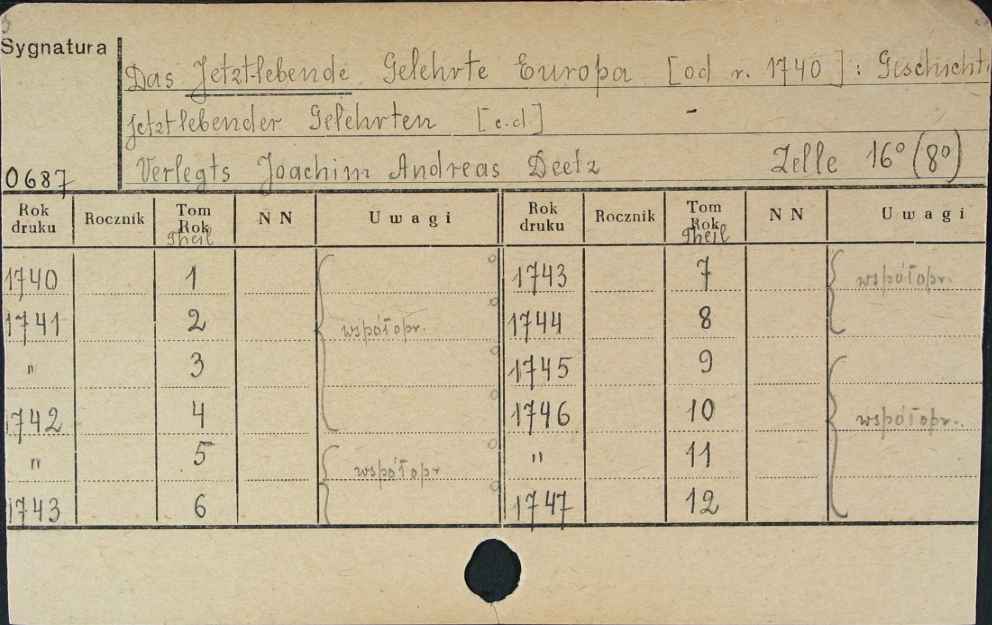 Sygnatura
Das Jetzt-lebende Gelehrte Europa [od r. 1740]: Geschicht
jetztlebender Gelehrten [c.d] -
0687 Verlegts Joachim Andreas Deetz Zelle 16° (8°)
Rok druku Rocznik Tom Rok Theil N N Uwagi Rok druku Rocznik Tom Rok Theil N N Uwagi
1740 1 1743 7 współopr.
1741 2 współopr. 1744 8
" 3 1745 9
1742 4 1746 10 współopr.
" 5 współopr " 11
1743 6 1747 12